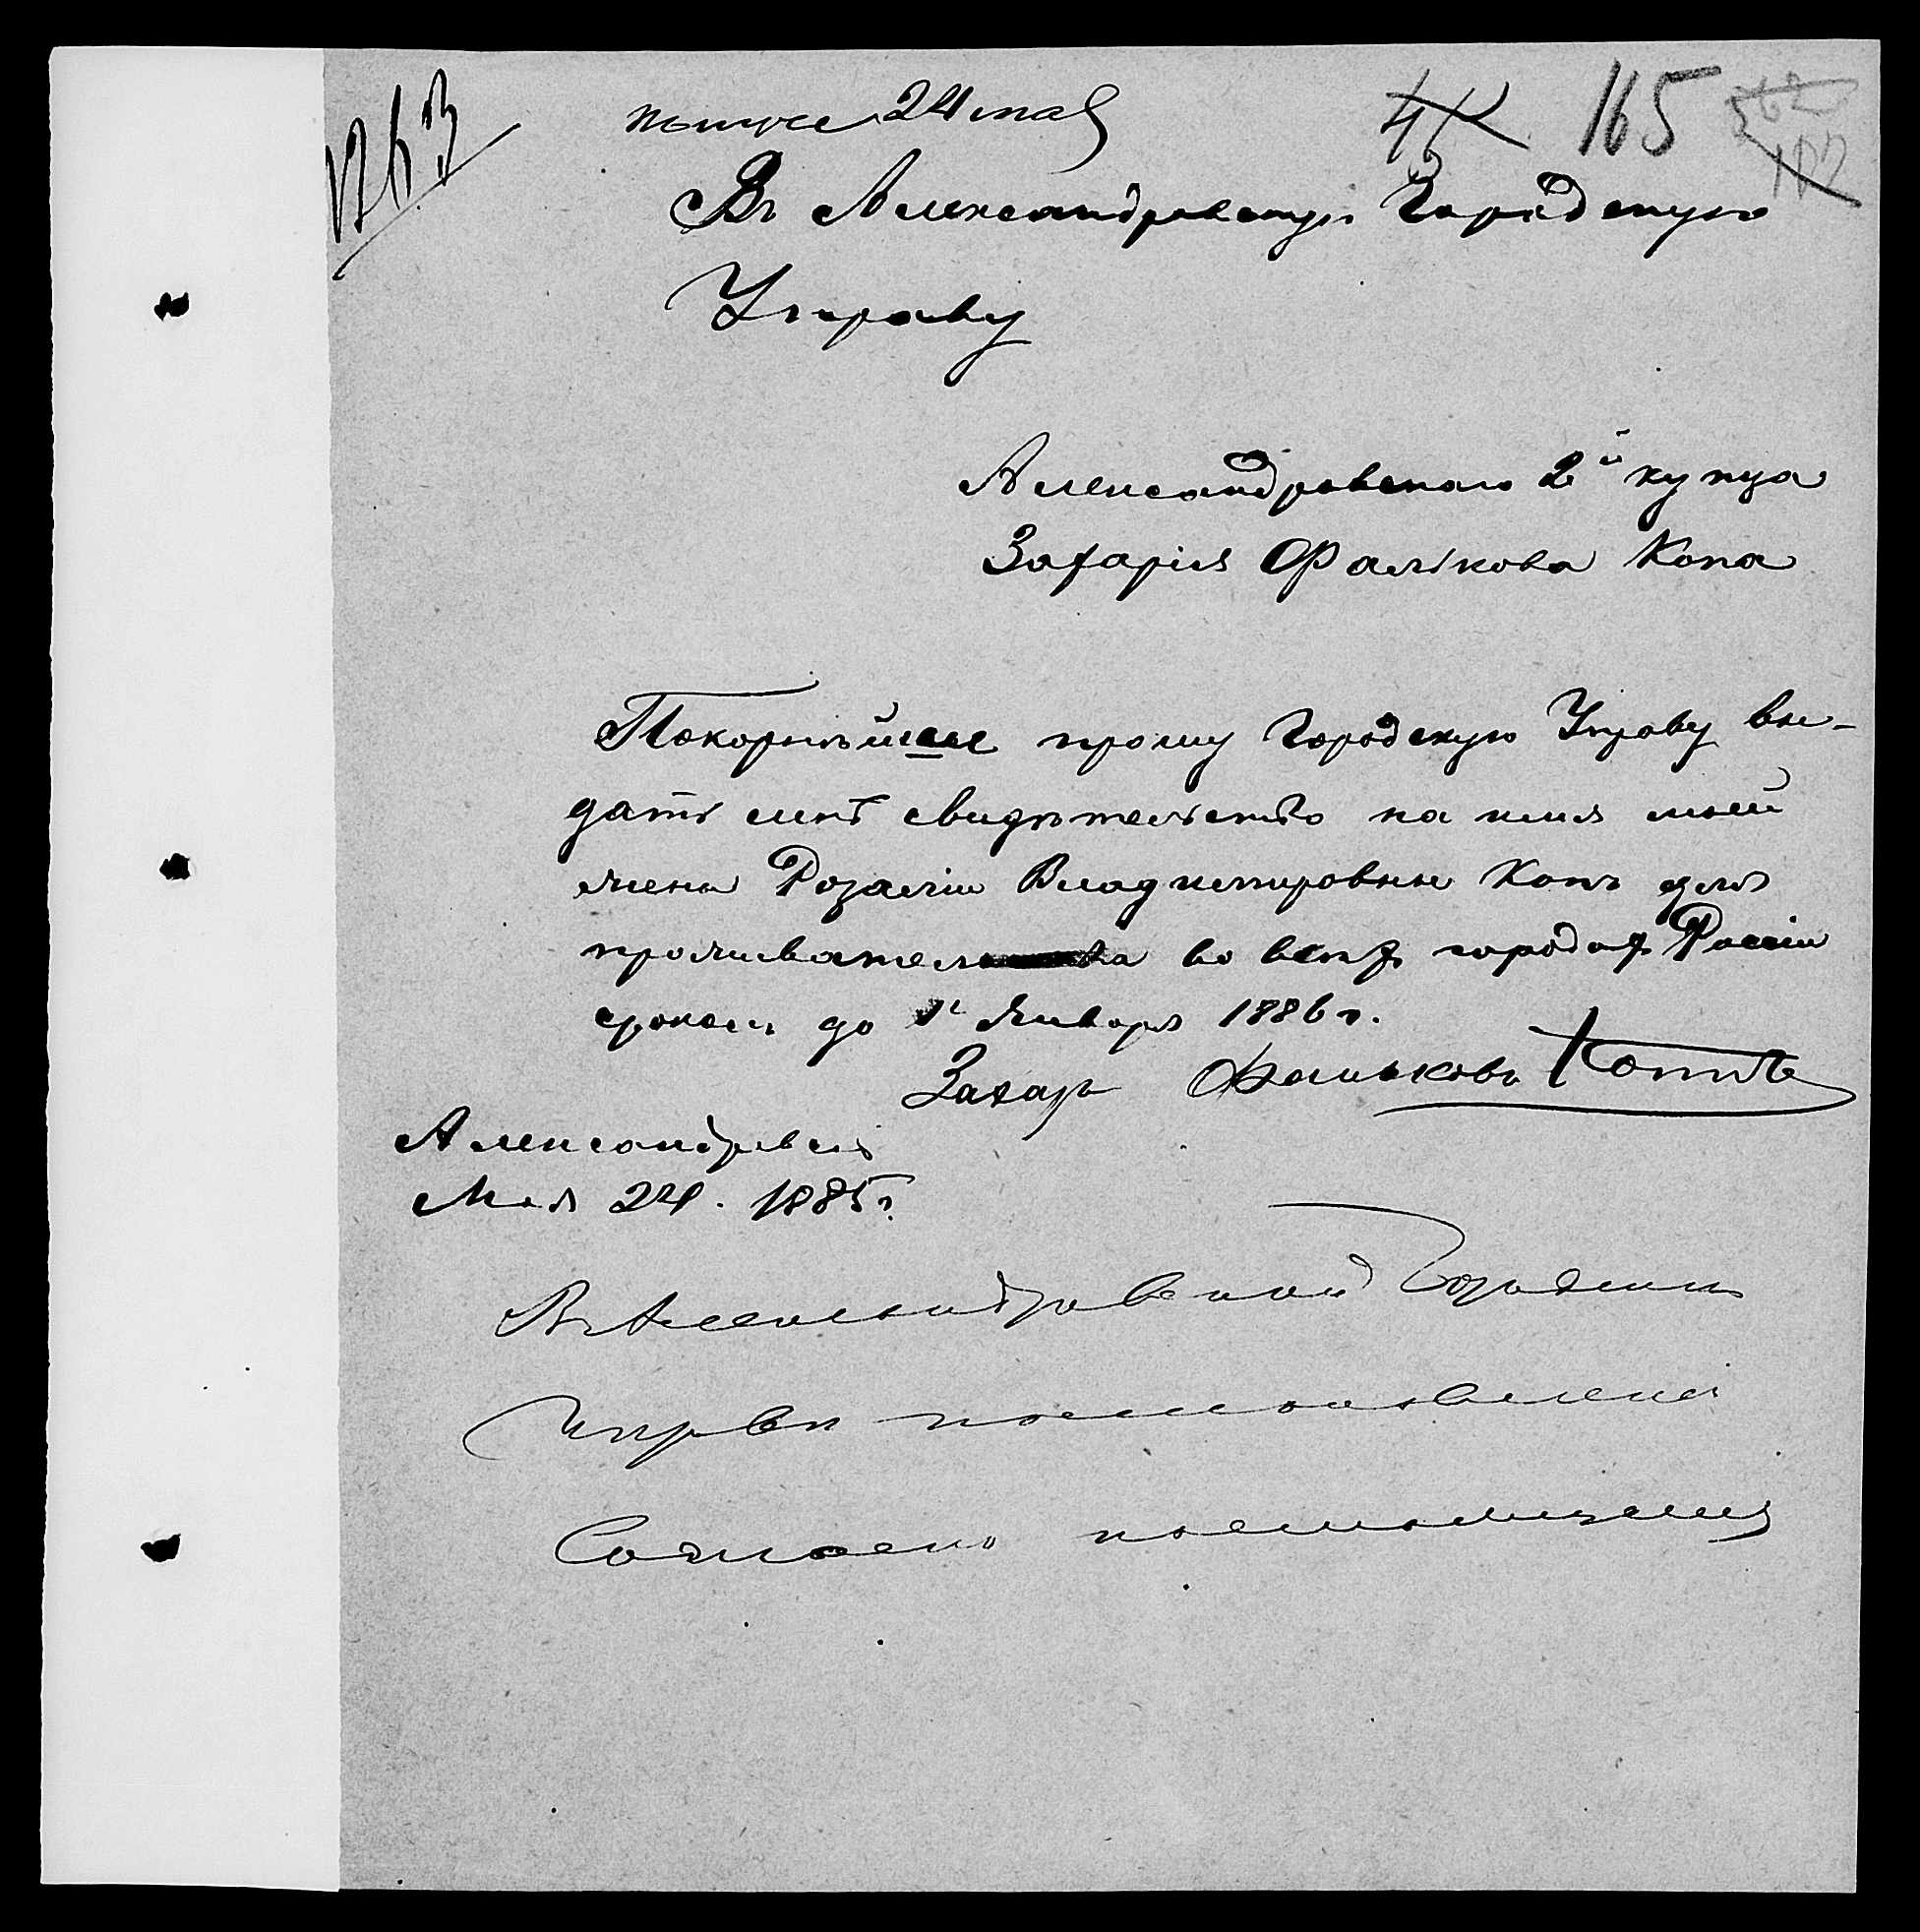 1263
24 мая
165
Въ Александровскую Городскую
Управу
Александровскаго 2й купца
Захарія Фалькова Копа
Покорнѣйше прошу Городскую Управу вы-
дать мнѣ свидѣтельство на имя моей
жены Розаліи Владимировны Копъ для
во всѣхъ городахъ Россіи
срокомъ до 1 Января 1886 г.
Захаръ Фальковъ Копъ
Александровскъ
Мая 24. 1885 г.
Въ Александровской Городской
Управѣ постановлено